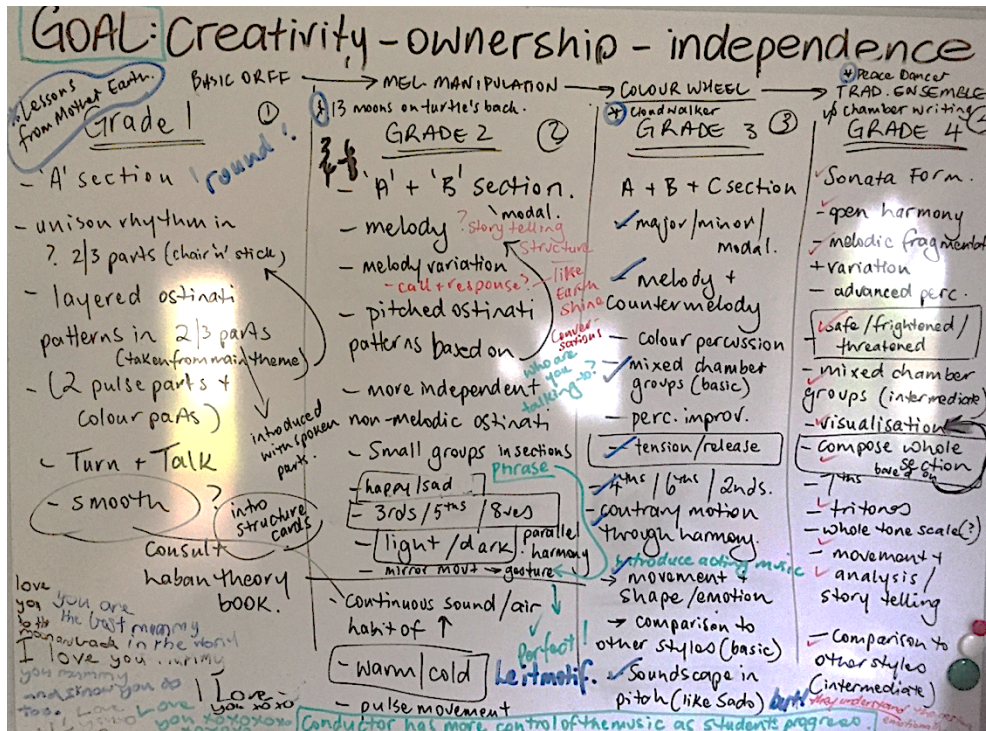 GOAL: Creativity - ownership - independence
* Lessons from Mother Earth.
BASIC ORFF → MEL MANIPULATION → COLOUR WHEEL → TRAD. ENSEMBLE
* Peace Dancer
chamber writing
Grade 1 ①
'round'!
- 'A' section
- unison rhythm in
? 2/3 parts (chair 'n' stick)
- layered ostinati
patterns in 2/3 parts
(taken from main theme)
- (2 pulse parts +
colour parts)
introduced
with spoken
parts.
- Turn + Talk
- smooth ?
intro
structure
cards
Consult
Laban theory
book.
love
you
you are
the best mummy
in the world
I love you
I Love
you xoxo
* 13 moons on turtle's back.
GRADE 2 ②
- 'A' + 'B' section.
- melody
modal.
? story telling
structure
- melody variation
- call + response?
like
Earth
shine
- pitched ostinati
patterns based on
conver-
sations
who are
you
talking to?
- more independent
non-melodic ostinati
- Small groups in sections
Phrase
- happy/sad
- 3rds/5ths/8ves
- light/dark
parallel
harmony
- mirror movt → gesture
- continuous sound/air
habit of ↑
perfect!
- warm/cold
- pulse movement
Leitmotif.
* Cloudwalker
GRADE 3 ③
A + B + C section
- major/minor/
modal.
- melody +
countermelody
- colour percussion
- mixed chamber
groups (basic)
- perc. improv.
- tension/release
- 4ths/6ths/2nds.
- contrary motion
through harmony.
introduce acting music
→ movement +
shape/emotion
→ comparison to
other styles (basic)
- Soundscape in
pitch (like Sado)
GRADE 4
- Sonata Form.
- open harmony
- melodic fragmentat
+ variation
- advanced perc.
- safe/frightened/
threatened
- mixed chamber
groups (intermediate)
- visualisation
- compose whole
section
based on
- 7ths
- tritones
- whole tone scale (?)
- movement +
analysis/
story telling
- Comparison to
other styles
(intermediate)
they understand the
Conductor has more control of the music as students progress